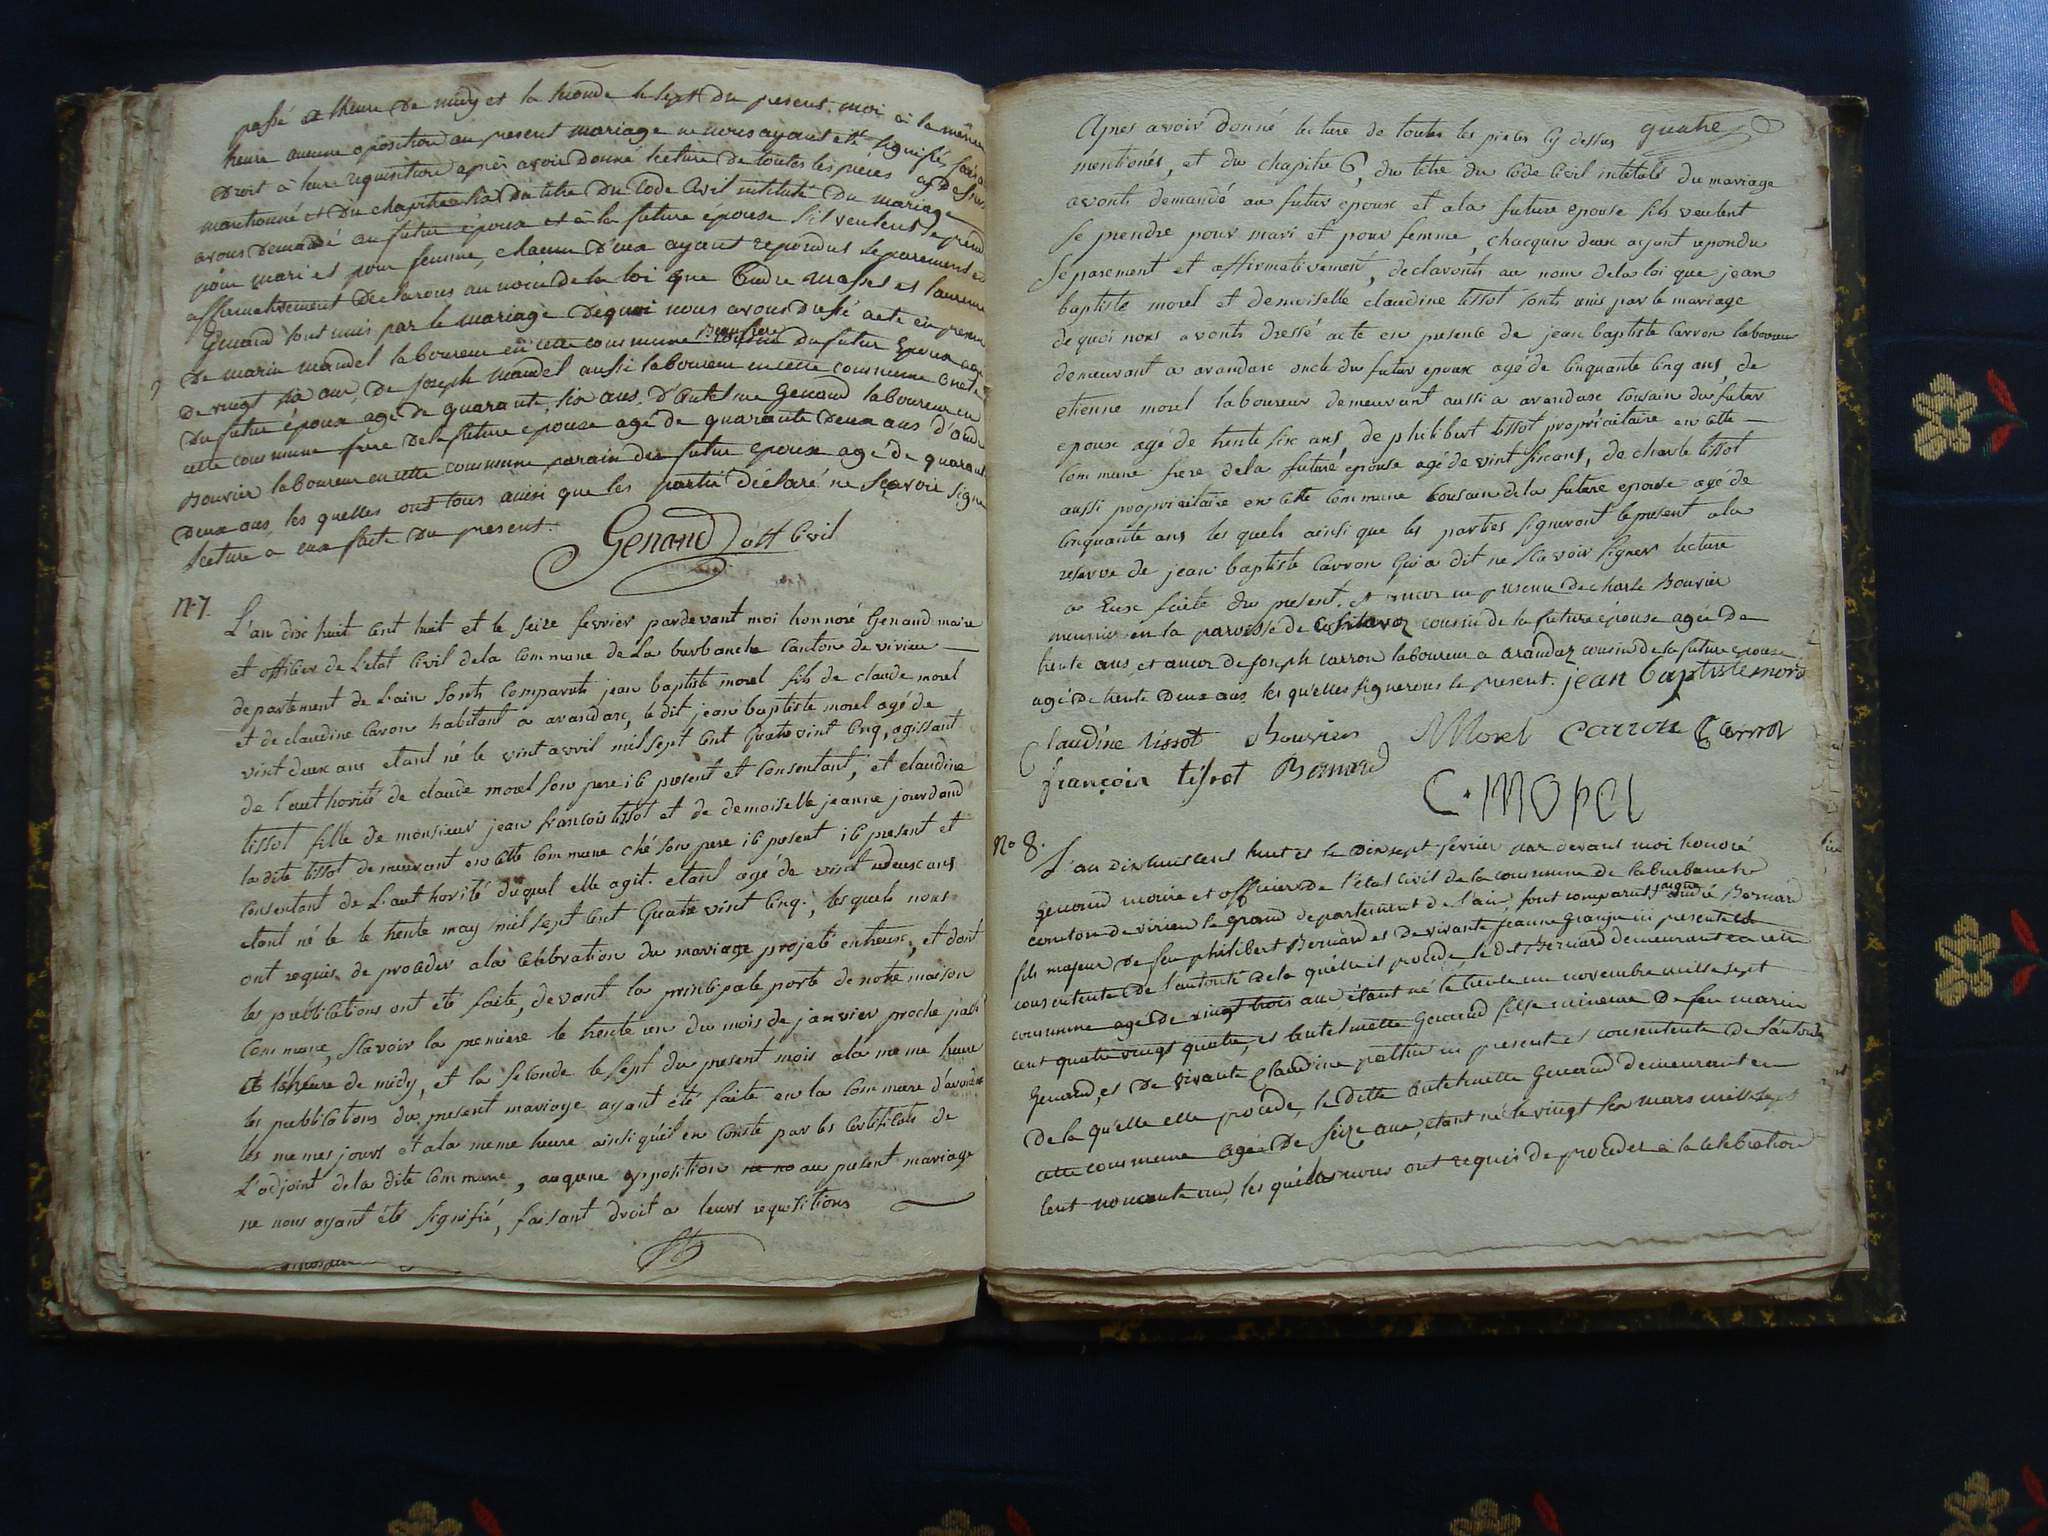 passé a lheure de midy et la seconde le sept du present moi à la même
heure aucune oposition au present mariage ne nous ayant eté signifié, fais
Droit à leur requisitoire après avoir donné lecture de toutes les pièces cy Dessus
mantionné et Du chapitre six Du titre Du Code Civil intitulé Du mariage
avons Demandé au futur époux et à la future épouse s'il veulent se prend
pour mari et pour femme, chacun D'eux ayant repondus separement et
affirmativement Declarons au nom de la loi que
Genand sont unis par le mariage De quoi nous avons Dressé acte en presence
De marin mandel laboureur en cette commune Beau frere Du futur Epoux agé
De vingt six ans, De Joseph Mandel aussi laboureur en cette commune oncle
Du futur époux agé de quarante six ans, d'Antelme Genand laboureur en
cette commune frere De la future epouse agé de quarante Deux ans D'
Bouvier laboureur en cette commune parain du futur epoux agé De quarante
Deux ans, les quelles ont tous ainsi que les partie Déclaré ne sçavoir signé
lecture a eux faite Du present.
Genand off Civil
N. 7.
L'an dix huit cent huit et le seize fevrier pardevant moi honnoré Genand maire
et officier de L'etat Civil de la Commune de La burbanche Canton de virieu
departement de L'ain sonts Comparuts jean baptiste morel fils de claude morel
et de claudine Caron habitant a arandas, le dit jean baptiste morel agé de
vint deux ans etant né le vint avril mil sept cent quatre vint cinq, agissant
de l'authorité de claude morel son pere ici present et Consentant, et claudine
tissot fille de monsieur jean francois tissot et de demoiselle jeanne jourdand
la dite tissot demeurant en cette Commune ché son pere ici present ici present et
Consentant de L'authorité duquel elle agit. etant agé de vint deux ans
etant né le le trente may mil sept cent quatre vint cinq, lesquels nous
ont requis de proceder a la Celebration du mariage projeté entreux, et dont
les publications ont eté faite, devant la principale porte de notre maison
Commune, Scavoir la premiere le trente un du mois de janvier proche passé
et l'heure de midy, et la seconde le sept du present mois a la meme heure
les publications du present mariage ayant eté faite en la Commune d'arandas
les memes jours et a la meme heure ainsi qu'il en Conste par les Certificats de
L'adjoint de la dite Commune, auqune opposition au present mariage
ne nous ayant eté signifié, faisant droit a leurs requisitions
Apres avoir donné lecture de toutes les pieces cy dessus quatre
mentionés, et du chapitre 6, du titre du Code Civil intitulé du mariage
avonts demandé au futur epoux et a la future epouse sils veulent
se prendre pour mari et pour femme, chacqun deux ayant repondu
separement et affirmativement, declaronts au nom de la loi que jean
baptiste morel et demoiselle claudine tissot sonts unis par le mariage
de quoi nous avonts dressé acte en presence de jean baptiste Carron laboureur
demeurant a arandas oncle du futur epoux agé de cinquante cinq ans, de
etienne morel laboureur demeurant aussi a arandas Cousain du futur
epoux agé de trente six ans, de philibert tissot propriétaire en cette
Commune frere de la future epouse agé de vint six ans, de charle tissot
aussi propriétaire en cette Commune Cousain de la future epouse agé de
cinquante ans les quels ainsi que les parties signeront le present a la
reserve de jean baptiste Carron qui a dit ne scavoir signer lecture
a Eux faite du present. et encor en presence de charle Bouvier
meunier en la paroisse de cousin de la future épouse agée De
trente ans, et ancor de joseph carron laboureur a arandaz cousin de la future epouse
agé De trente Deux ans, les qu'elles signerons le present. jean baptiste morel
Claudine tissot Bouvier Morel carron Carron
françoix tissot Bernard
C. Morel
No 8.
L'an Dix huis cens huit et le Dix sept fevrier par devant moi honoré
Genand maire et officier De l'état Civil de la commune de laburbanche
canton de virieu le grand departement de l'ain, sont comparus andré Bernard
fils majeur De feu philibert Bernard et De vivante jeanne Granju ici presente et
consentente De l'autorité De la qu'elle il procède, le dit Bernard demeurant en cette
commune agé de vingt trois ans, étant né le trente un novembre mille sept
cent quatre vingt quatre, et Entelmette Genand fille mineure De feu marin
Genand, et De vivante Claudine ici present et consentente De l'autorité
De la qu'elle elle procède, le ditte Antelmette Genand demeurant en
cette commune agée De seize ans, étant né le vingt six mars mille sept
cent nonante un, les quélles nous ont requis de proceder à la célébration